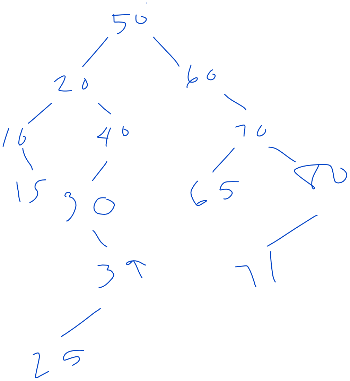 50
20 60
10 40 70
15 30 65 80
71
25